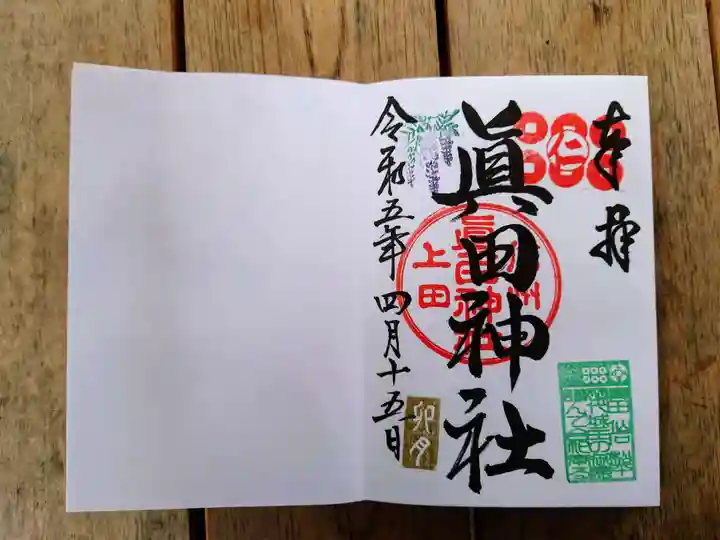 奉拝
眞田神社
信州
眞田神社
上田
令和五年四月十五日
卯月